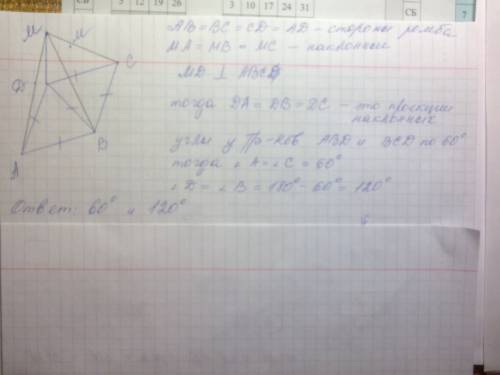 СВ 5 12 19 26
3 10 17 24 31
СБ
7
М М
D
C
A
B
AB = BC = CD = AD - стороны ромба
MA = MB = MC - наклонные
MD ⊥ ABCD
тогда DA = DB = DC - то проекции
наклонных
углы у тр-ков ABD и BCD по 60°
тогда ∠A = ∠C = 60°
∠D = ∠B = 180° - 60° = 120°
Ответ: 60° и 120°